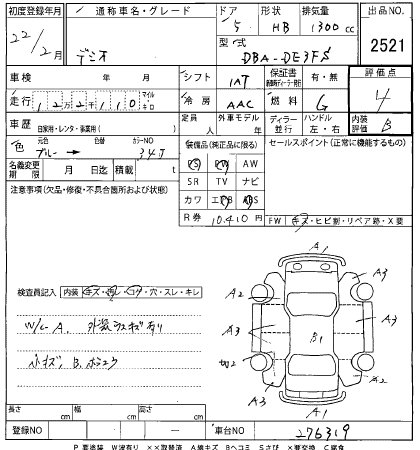 初度登録年月
22/2月
通称車名・グレード
デミオ
ドア
5
形状
HB
排気量
1300cc
型式
DBA-DE3FS
出品NO.
2521
車検
年 月
シフト
IAT
保証書
有・無
評価点
4
走行
12万2千110
マイル
キロ
冷房
AAC
燃料
G
車歴
自家用・レンタ・事業用( )
定員
人
外車モデル
年
ディーラー
並行
ハンドル
左・右
内装
評価
B
色
元色
ブルー→
色替
カラーNO
34J
装備品(純正品に限る)
PS PW AW
SR TV ナビ
カワ エアB ABS
R券 10,410円
セールスポイント(正常に機能するもの)
名義変更
期限
月 日迄
車検証
有効期限
月 日
注意事項(欠品・修復・不具合箇所および状態)
FW
キズ・ヒビ割・リペア跡・X要
検査員記入
内装
キズ・汚レ・コゲ・穴・スレ・キレ
W/L A. 外装小キズ有り
A1
A2
A3
A3
A3
B1
A3
A2
A3
A1
長さ
cm
幅
cm
高さ
cm
登録NO
車台NO
276319
P要塗装 W波有り ××取替済 A線キズ Bヘコミ Sさび ×要交換 C腐食